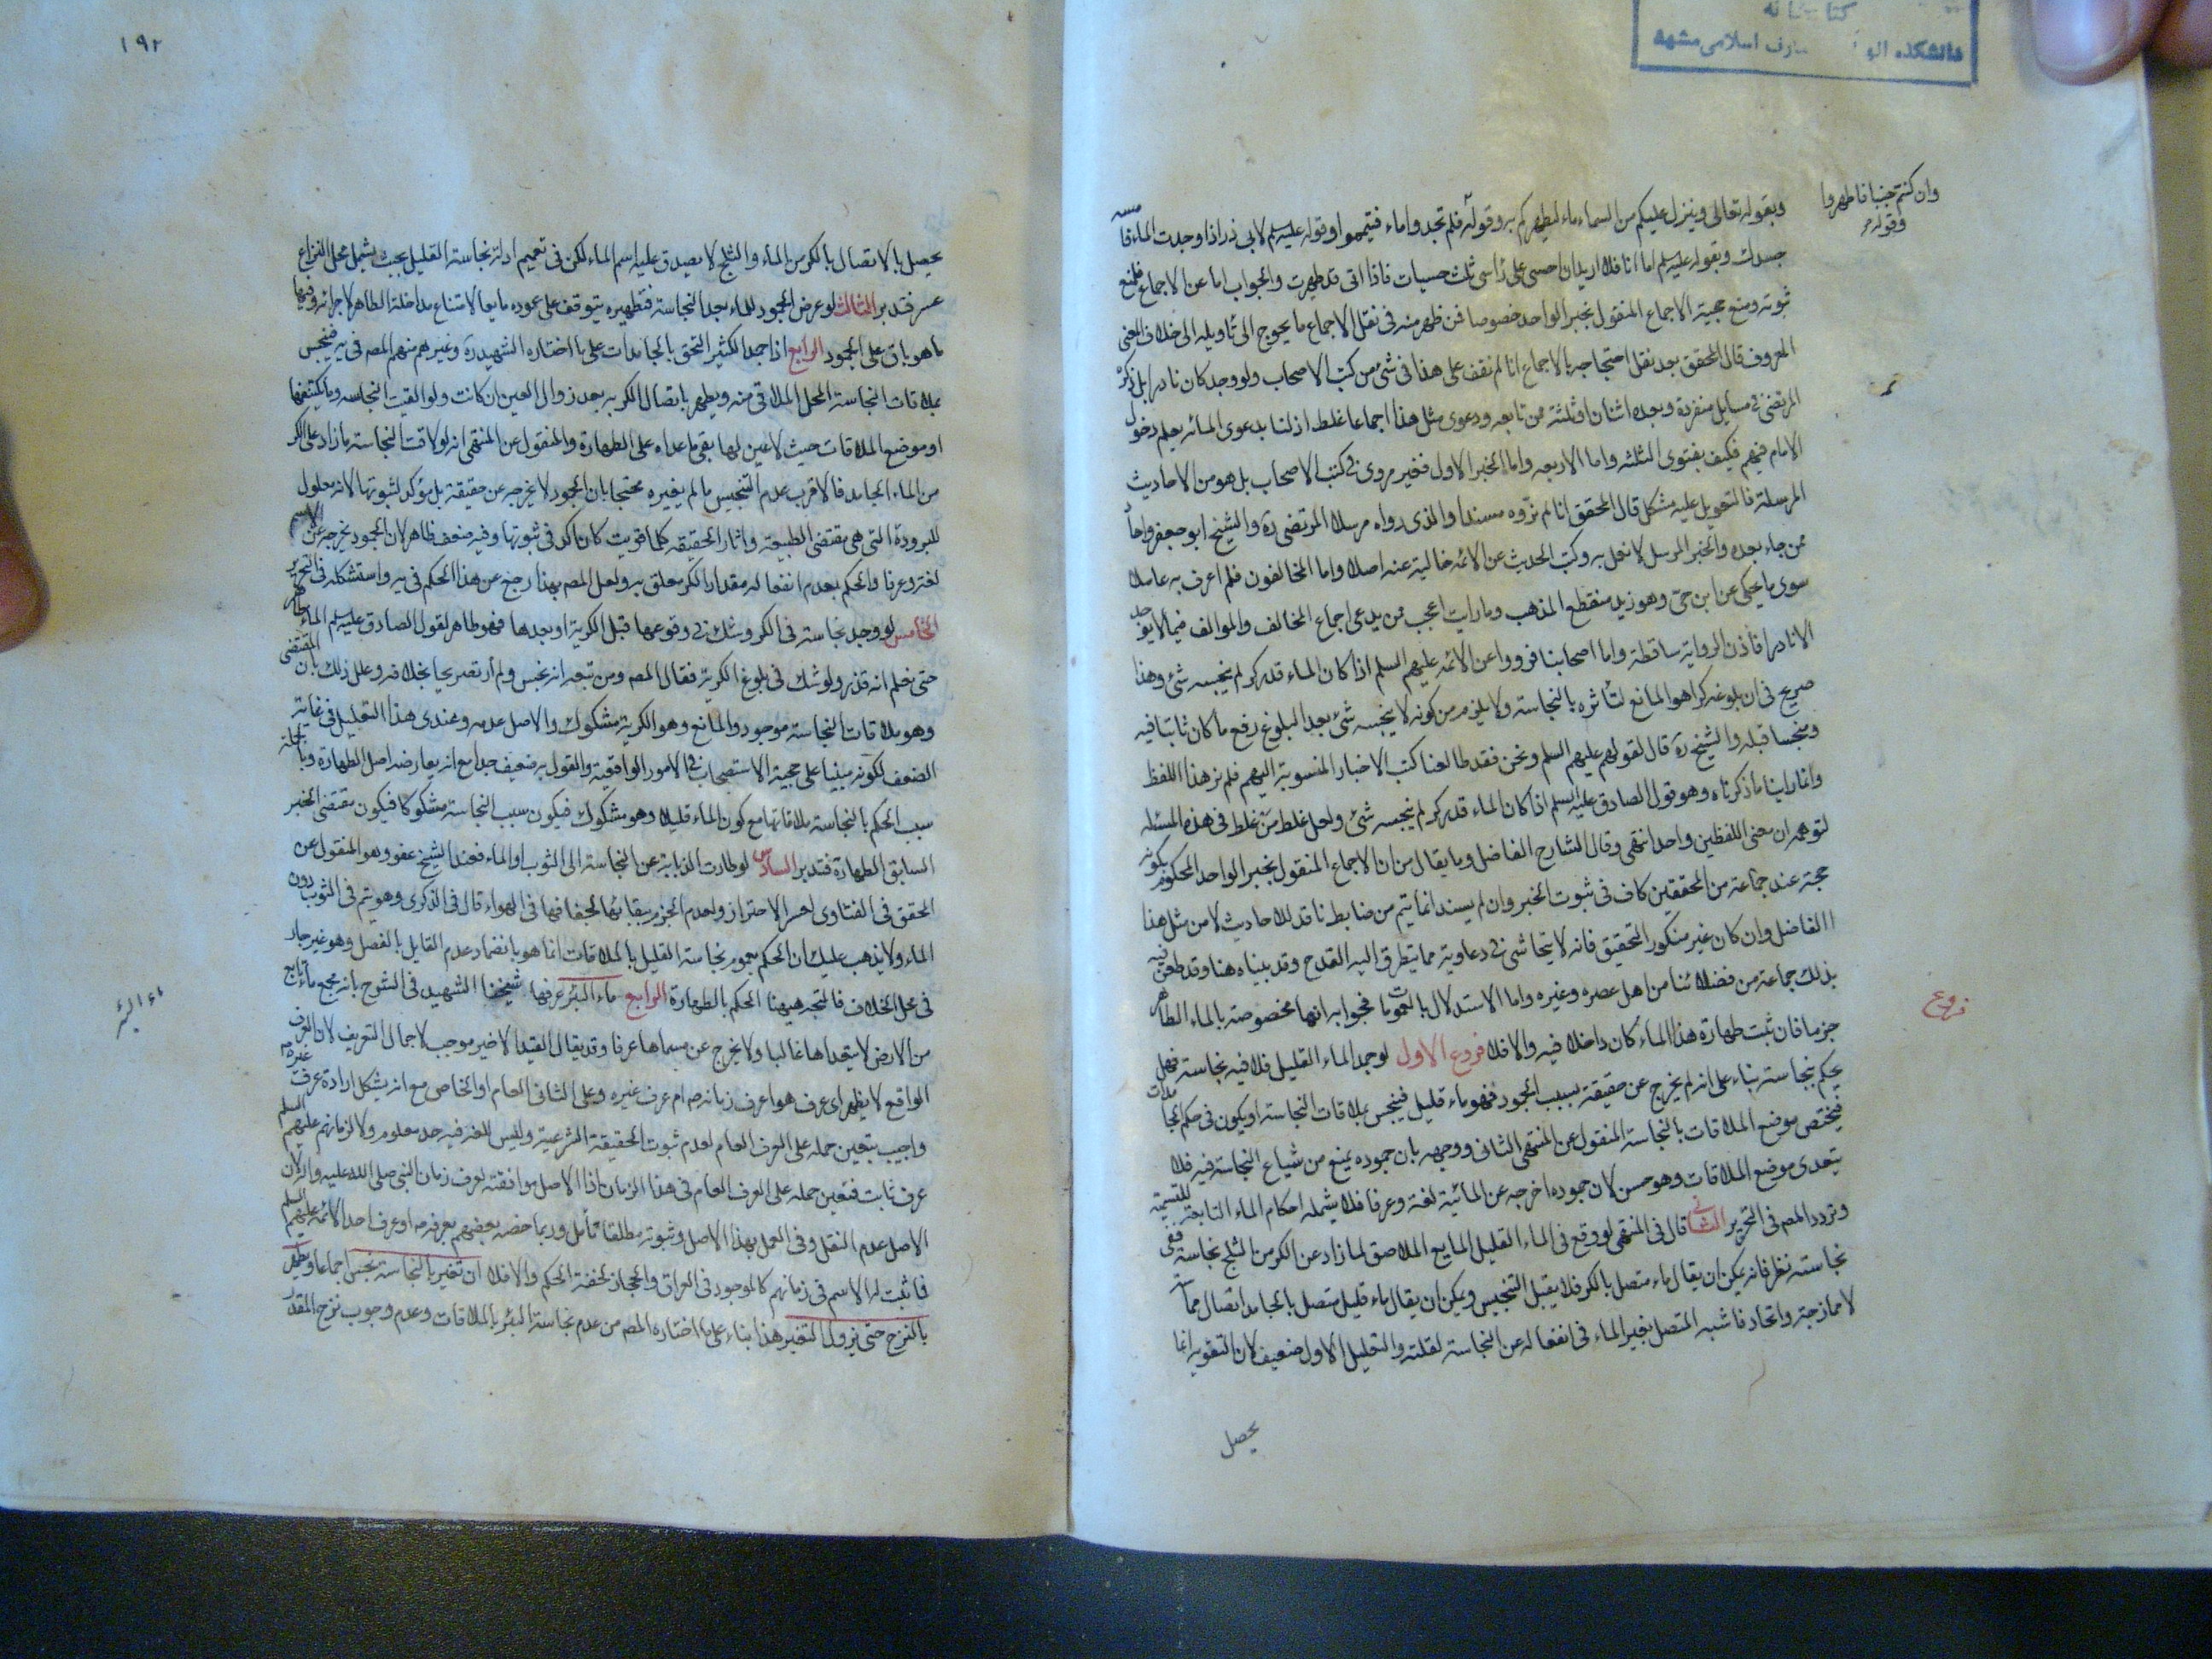 كتابخانه
دانشكده الهيات و معارف اسلامى مشهد
وان كنتم جنبا فاطهروا
وقوله
وبقوله تعالى وينزل عليكم من السماء ماء ليطهركم به وقوله فلم تجدوا ماء فتيمموا وقوله عليه السلم لابى ذر اذا وجدت الماء فامسه
جسدك وبقوله عليه السلم اما انا فلا ازيد ان احسى على راسى ثلث حسيات فاذا انى قد طهرت والجواب اما عن الاجماع فلمنع
ثبوته ومنع حجية الاجماع المنقول بخبر الواحد خصوصا فمن ظهر منه فى نقل الاجماع ما يحوج الى تاويله الى خلاف المعنى
المعروف قال المحقق بعد نقل احتجاجه بالاجماع انا لم نقف على هذا فى شئ من كتب الاصحاب ولو وجد كان نادرا بل ذكره
المرتضى فى مسايل منفردة وبعده اثنان او ثلثة ممن تابعه ودعوى مثل هذا اجماعا غلط اذ لسنا بدعوى المائه يعلم دخول
الامام فيهم فكيف بفتوى الثلثه واما الاربعه واما الخبر الاول فغير مروى فى كتب الاصحاب بل هو من الاحاديث
المرسلة فالتعويل عليه مشكل قال المحقق انا لم نروه مسندا والذى رواه مرسلا المرتضى ره والشيخ ابو جعفر واحاد
ممن جاء بعده والخبر المرسل لا نعمل به وكتب الحديث عن الائمه خالية عنه اصلا واما المخالفون فلم اعرف به عاملا
سوى ما يحكى عن ابن حى وهو زيدى منقطع المذهب وما رايت اعجب ممن يدعى اجماع المخالف والموالف فيما لا يوجد
الا نادرا فاذن الرواية ساقطة واما اصحابنا فرووا عن الائمه عليهم السلم اذا كان الماء قدر كر لم ينجسه شئ وهذا
صريح فى ان بلوغه كرا هو المانع لتأثره بالنجاسة ولا يلزم من كونه لا ينجسه شئ بعد البلوغ رفع ما كان ثابتا فيه
ومنجسا قبله والشيخ ره قال لقولهم عليهم السلم ونحن فقد طالعنا كتب الاخبار المنسوبة اليهم فلم نر هذا اللفظ
وانما راينا ما ذكرناه وهو قول الصادق عليه السلم اذا كان الماء قدر كر لم ينجسه شئ ولعل غلط من غلط فى هذه المسئله
لتوهمه ان معنى اللفظين واحد انتهى وقال الشارح الفاضل وما يقال من ان الاجماع المنقول بخبر الواحد المحكوم بكونه
حجة عند جماعة من المحققين كاف فى ثبوت الخبر وان لم يسند انما يتم من ضابط ناقد للاحاديث لا من مثل هذا
الفاضل وان كان غير منكور التحقيق فانه لا يتحاشى فى دعاويه مما يتطرق اليه القدح وقد بيناه هنا وقد طعن فيه
بذلك جماعة من فضلائنا من اهل عصره وغيره واما الاستدلال بالعمومات فجوابه انها مخصوصة بالماء الطاهر
جزما فان ثبت طهارة هذا الماء كان داخلا فيه والا فلا فروع الاول لو جمد الماء القليل فلاقيه نجاسة فهل
فروع
يحكم بنجاسته بناء على انه لم يخرج عن حقيقته بسبب الجمود فهو ماء قليل فينجس بملاقات النجاسة او يكون فى حكم الجامدات
فيختص موضع الملاقات بالنجاسة المنقول عن المنتهى الثانى ووجهه بان جموده يمنع من شياع النجاسة فيه فلا
يتعدى موضع الملاقات وهو حسن لان جموده اخرجه عن المائية لغة وعرفا فلا يشمله احكام الماء التابعة للتسمية
وتردد المصه فى التحرير الثانى قال فى المنتهى لو وقع فى الماء القليل المايع الملاصق لما زاد عن الكر من الثلج نجاسة ففى
نجاسته نظر فانه يمكن ان يقال ماء متصل بالكر فلا يقبل التنجيس ويمكن ان يقال ماء قليل متصل بالجامد اتصال مماسة
لا ممازجة واتحاد فاشبه المتصل بغير الماء فى انفعاله عن النجاسة لقلته والتعليل الاول ضعيف لان التقويه انما
يحصل
١٩٢
يحصل بالاتصال بالكر من الماء والثلج لا يصدق عليه اسم الماء لكن فى تعميم ادلة نجاسة القليل بحيث يشمل محل النزاع
عسر فتدبر الثالث لو عرض الجمود للماء بعد النجاسة فتطهيره يتوقف على عوده مايعا لامتناع مداخلة الطاهر لاجزائه وفيها
ما هو باق على الجمود الرابع اذا جمد الكثير التحق بالجامدات على ما اختاره الشهيد ره وغيرهم منهم المصه فى يه فينجس
بملاقات النجاسة المحل الملاقى منه ويطهر باتصال الكر به بعد زوال العين ان كانت ولو القيت النجاسه وما يكتنفها
او موضع الملاقات حيث لا عين لها بقى ما عداه على الطهارة والمنقول عن المنتهى انه لو لاقت النجاسة ما زاد على الكر
من الماء الجامد فالاقرب عدم التنجيس ما لم يغيره محتجا بان الجمود لا يخرجه عن حقيقته بل مؤكد لثبوتها لانه معلول
للبرودة التى هى مقتضى الطبيعة واثار الحقيقه كلما قويت كان اكد فى ثبوتها وفيه ضعف ظاهر لان الجمود يخرجه عن الاسم
لغة وعرفا والحكم بعدم انفعاله مقدار الكر معلق به ولعل المصه بهذا رجع عن هذا الحكم فى يه واستشكله فى التحرير
الخامس لو وجد نجاسة فى الكر وشك فى وقوعها قبل الكرية او بعدها فهو طاهر لقول الصادق عليه السلم الماء طاهر
حتى يعلم انه قذر ولو شك فى بلوغ الكرية فقال المصه ومن تبعه انه نجس ولم أر تصريحا بخلافه وعلل ذلك بان المقتضى
وهو ملاقات النجاسة موجود والمانع وهو الكرية مشكوك والاصل عدمه وعندى هذا التعليل فى غاية
الضعف لكونه مبنيا على حجية الاستصحاب فى الامور الواقعية والقول به ضعيف جدا مع انه يعارضه اصل الطهارة وبالجملة
سبب الحكم بالنجاسة ملاقاتها مع كون الماء قليلا وهو مشكوك فيكون سبب النجاسة مشكوكا فيكون مقتضى الخبر
السابق الطهارة فتدبر السادس لو طارت الذبابة عن النجاسة الى الثوب او الماء فعند الشيخ عفو وهو المنقول عن
المحقق فى الفتاوى لعسر الاحتراز ولعدم الجزم ببقائها لجفافها فى الهواء قال فى الذكرى وهو يتم فى الثوب دون
الماء ولا يذهب عليك ان الحكم بعموم نجاسة القليل بالملاقات انما هو بانضمام عدم القايل بالفصل وهو غير جار
فى محل الخلاف فالمتجه هيهنا الحكم بالطهارة الرابع ماء البئر عرفها شيخنا الشهيد فى الشرح بانه مجمع ماء نابع
ماء البئر
من الارض لا يتعداها غالبا ولا يخرج عن مسماها عرفا وقد يقال القيد الاخير موجب لاجمال التعريف لان العرف
الواقع لا يظهر اى عرف هو اعرف زمانه صه ام عرف غيره وعلى الثانى العام او الخاص مع انه يشكل ارادة عرف غيره
واجيب بتعين حمله على العرف العام لعدم ثبوت الحقيقة الشرعية وليس للغة فيه حد معلوم ولا لزمانهم عليهم السلم
عرف ثابت فتعين حمله على العرف العام فى هذا الزمان اذ الاصل موافقته لعرف زمان النبى صلى الله عليه واله لان
الاصل عدم النقل وفى العمل بهذا الاصل وثبوته مطلقا تأمل وربما خصه بعضهم بعرفه صه او عرف احد الائمه عليهم السلم
فما ثبت له الاسم فى زمانهم كالموجود فى العراق والحجاز لحقه الحكم والا فلا ان تغير بالنجاسة نجس اجماعا ويطهر
بالنزح حتى يزول التغير هذا بناء على ما اختاره المصه من عدم نجاسة البئر بالملاقات وعدم وجوب نزح المقدر